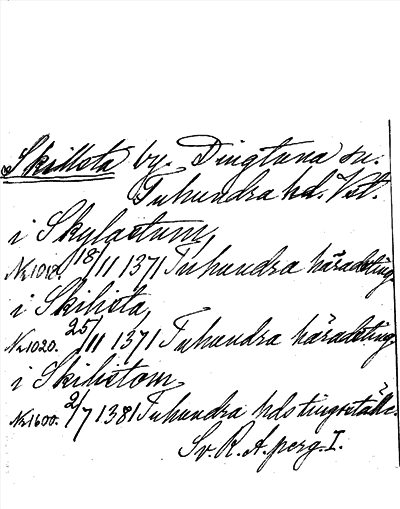 Skillsta by. Dingtuna sn.
Tuhundra hd. Vst.
i Skylastum,
Nr 1018. 18/11 1371 Tuhundra häradsting
i Skilista,
Nr 1020. 25/11 1371 Tuhundra häradsting.
i Skilistom,
Nr 1600. 2/7 1381 Tuhundra hds tingställe.
Sv. R. A. perg. I.